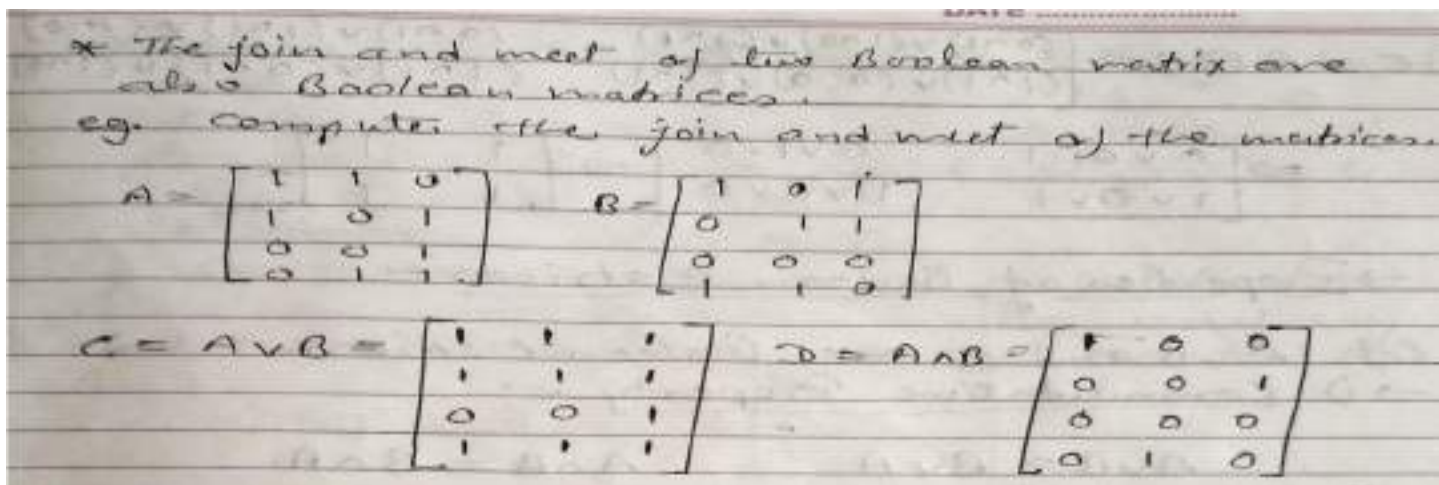 DATE
* The join and meet of two Boolean matrix are
also Boolean matrices.
eg. Compute the join and meet of the matrices.
A = [ 1 1 0
1 0 1
0 0 1
0 1 1 ]
B = [ 1 0 1
0 1 1
0 0 0
1 1 0 ]
C = A ∨ B = [ 1 1 1
1 1 1
0 0 1
1 1 1 ]
D = A ∧ B = [ 1 0 0
0 0 1
0 0 0
0 1 0 ]